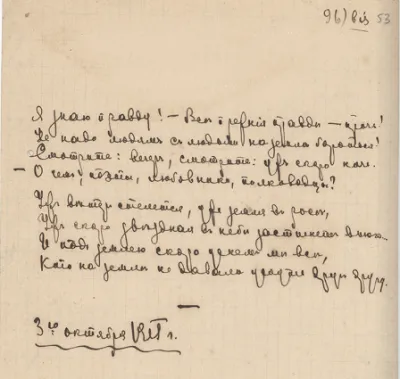 96) bis 53
Я знаю правду! — Всѣ прежнія правды — прочь!
Не надо людямъ съ людьми на землѣ бороться!
Смотрите: вечеръ, смотрите: ужъ скоро ночь.
— О чемъ, поэты, любовники, полководцы?
Ужъ вѣтеръ стелется, уже земля въ росѣ,
Ужъ скоро звѣздная въ небѣ застынетъ вьюга,
И подъ землею скоро уснемъ мы всѣ,
Кто на землѣ не давали уснуть другъ другу.
3го октября 1915 г.